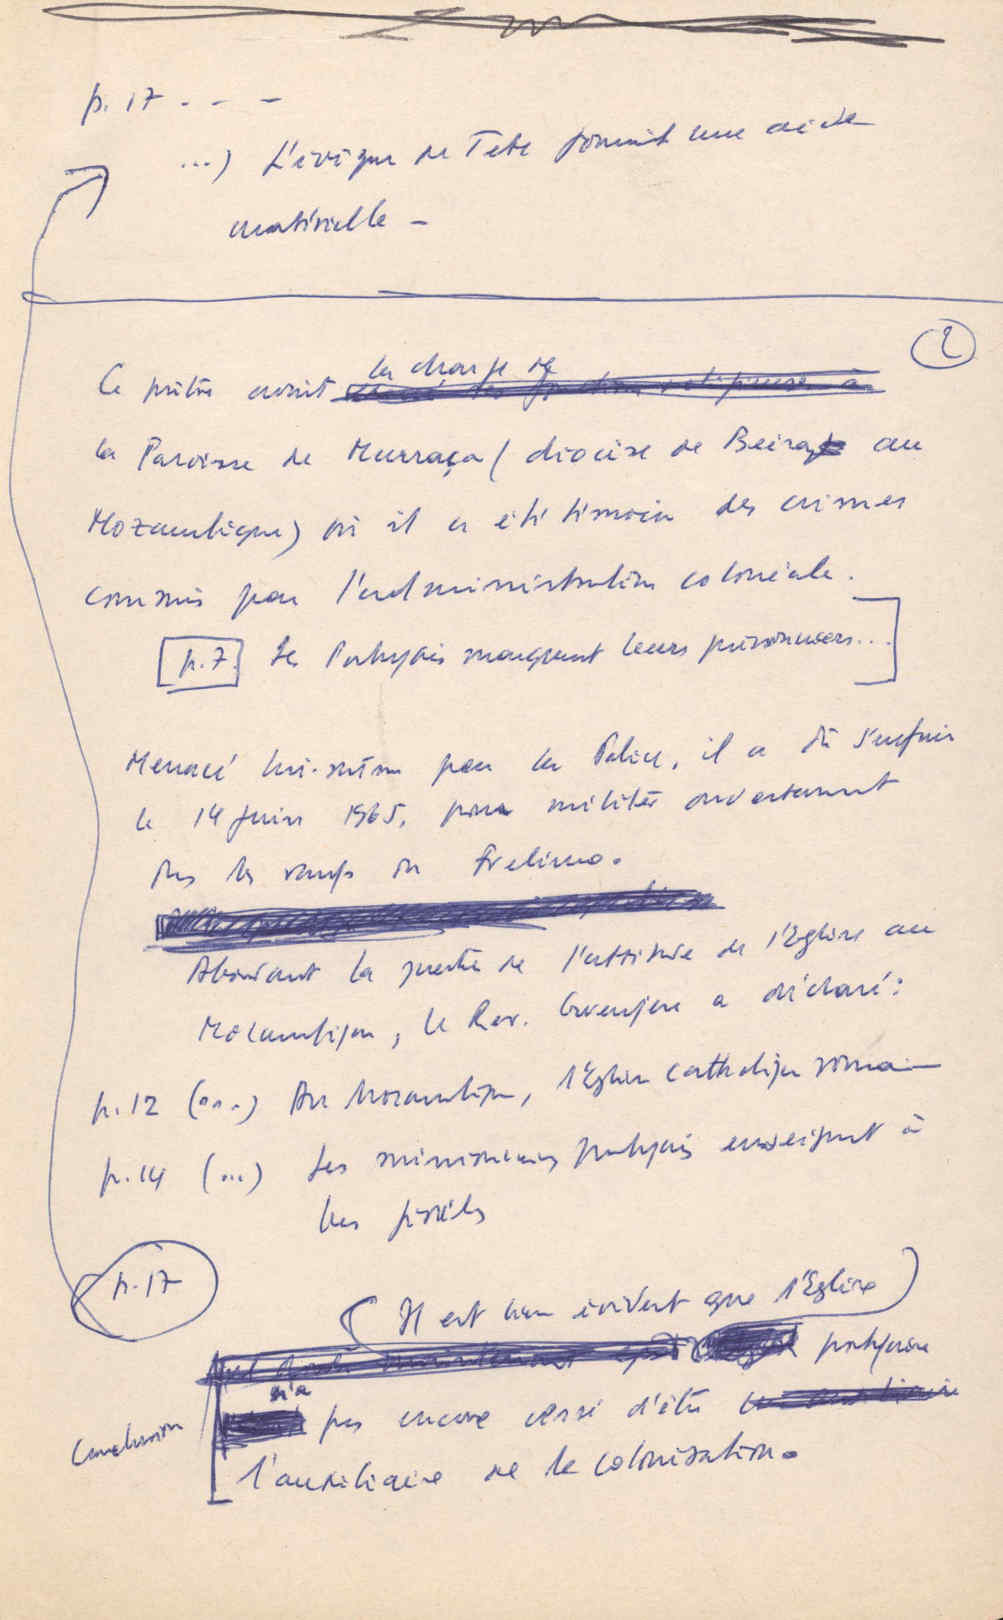 p. 17 - - -
...) L'évêque de Tete fournit une aide
matérielle -
2
la charge de
Ce prêtre avait
la Paroisse de Murraça (diocèse de Beira au
Mozambique) où il a été témoin des crimes
commis par l'administration coloniale.
p. 7. Les Portugais mangent leurs prisonniers...
Menacé lui-même par la Police, il a dû s'enfuir
le 14 Juin 1965, pour militer ouvertement
ds les rangs du Frelimo.
Abordant la question de l'attitude de l'Eglise au
Mozambique, le Rev. Gwenjere a déclaré :
p. 12 (...) Au Mozambique, l'Eglise catholique romaine
p. 14 (...) Les missionnaires portugais enseignent à
les fidèles
p. 17
Il est bien évident que l'Eglise
portugaise
n'a
pas encore cessé d'être
Conclusion
l'auxiliaire de la colonisation.